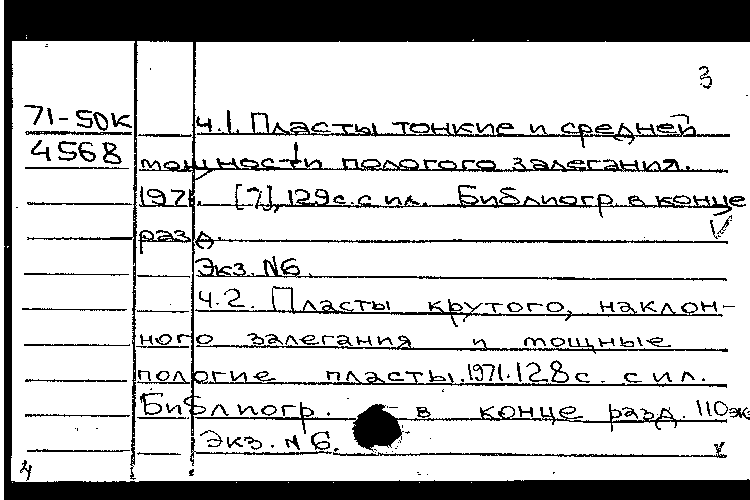 3
71-50к ч.1. Пласты тонкие и средней
4568 мощности пологого залегания.
1971. [7], 129с. с ил. Библиогр. в конце
разд.
Экз. N6.
ч.2. Пласты крутого, наклон-
ного залегания и мощные
пологие пласты. 1971. 128с. с ил.
Библиогр. в конце разд. 110эк
Экз. N 6.
4